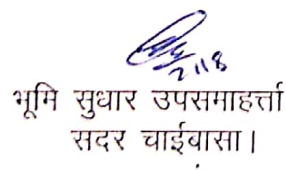 2118
भूमि सुधार उपसमाहर्त्ता
सदर चाईबासा।